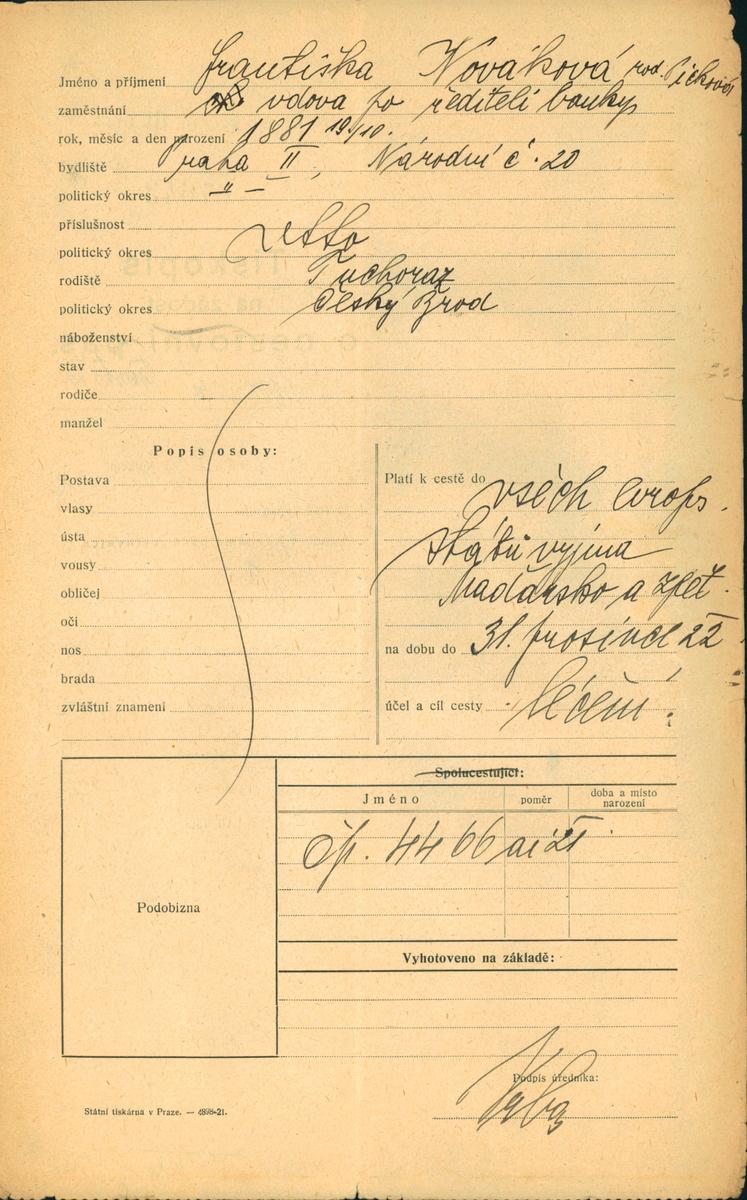 Jméno a příjmení Františka Nováková rod. Pickova
zaměstnání vdova po řediteli banky
rok, měsíc a den narození 1881 19/10.
bydliště Praha II, Národní č. 20
politický okres " —
příslušnost
politický okres
rodiště Tuchoraz
politický okres Český Brod
náboženství
stav
rodiče
manžel
Popis osoby:
Postava
vlasy
ústa
vousy
obličej
oči
nos
brada
zvláštní znamení
Platí k cestě do všech evrops.
států vyjma
Maďarsko a
na dobu do 31. prosince 22
účel a cíl cesty léčení.
Spolucestující:
Jméno poměr doba a místo narození
čp. 4466 ai 21
Podobizna
Vyhotoveno na základě:
Podpis úředníka:
Státní tiskárna v Praze. — 4898-21.